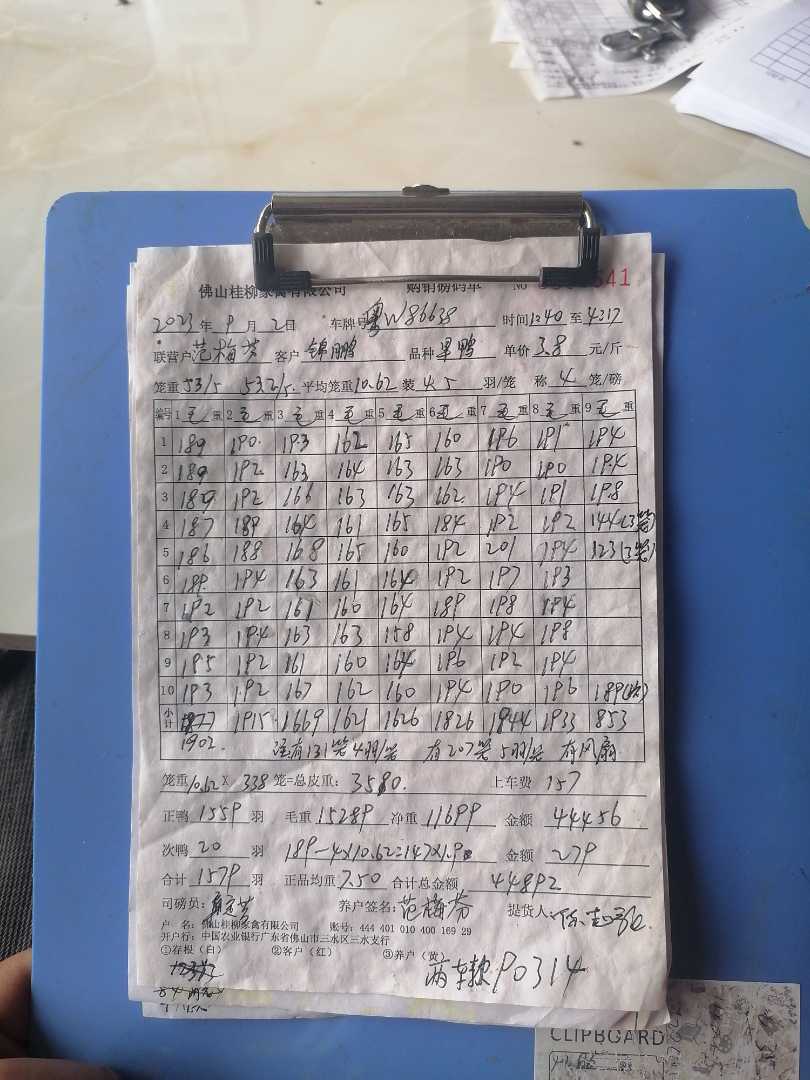 佛山桂柳家禽有限公司 购销磅码单 NO 541
2023年9月2日 车牌号粤W86638 时间1:40至4:17
联营户范梅芬 客户锦鹏 品种果鸭 单价3.8元/斤
笼重53/5 53.2/5. 平均笼重10.62装4.5羽/笼 称4笼/磅
编号 1毛重 2毛重 3毛重 4毛重 5毛重 6毛重 7毛重 8毛重 9毛重
1 189 190 193 162 165 160 196 191 194
2 189 192 163 164 163 163 190 190 194
3 189 192 166 163 163 162 194 191 198
4 187 189 164 161 165 184 192 192 144(3笼)
5 186 188 168 165 160 192 201 194 323(7笼)
6 189 194 163 161 164 192 197 193
7 192 192 161 160 164 189 198 194
8 193 194 163 163 158 194 194 198
9 195 192 161 160 164 196 192 194
10 193 192 167 162 160 194 190 196 189(次)
小计 1915 1669 1621 1626 1826 1944 1933 853
1902. 注有131笼4羽/笼 有207笼5羽/笼 有风扇
笼重10.62×338笼=总皮重:3580. 上车费157
正鸭1559羽 毛重15289净重11699 金额44456
次鸭20羽 189-4×10.62=147×1.9= 金额279
合计1579羽 正品均重7.50 合计总金额44892
司磅员: 养户签名:范梅芬 提货人:
户 名:佛山桂柳家禽有限公司 账号:444 401 010 400 169 29
开户行:中国农业银行广东省佛山市三水区三水支行
①存根(白) ②客户(红) ③养户(黄)
两车款90314
CLIPBOARD